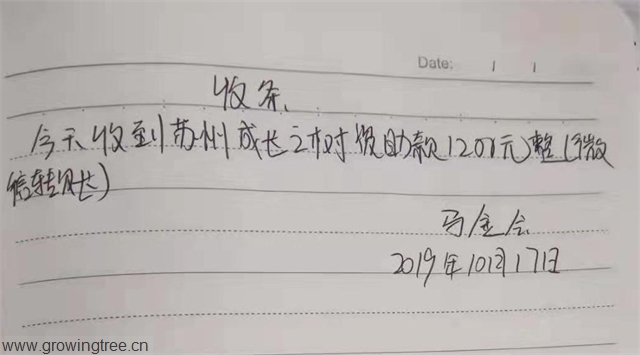 Date: / /
收条
今天收到苏州成长之树对资助款1200元整(微
信转账)
马金会
2019年10月17日
www.growingtree.cn